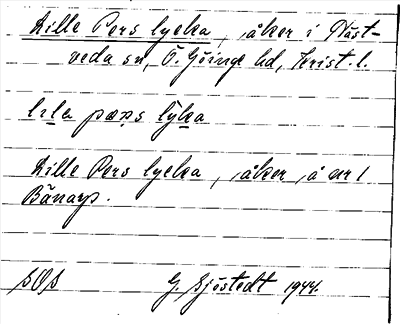 Lille Pers lycka, åker i Näst-
veda sn, Ö. Göinge hd, Krist. l.
lıla pæṇs lyka
Lille Pers lycka, åker å nr 1
Bänarp.
SOS G. Sjöstedt 1944.